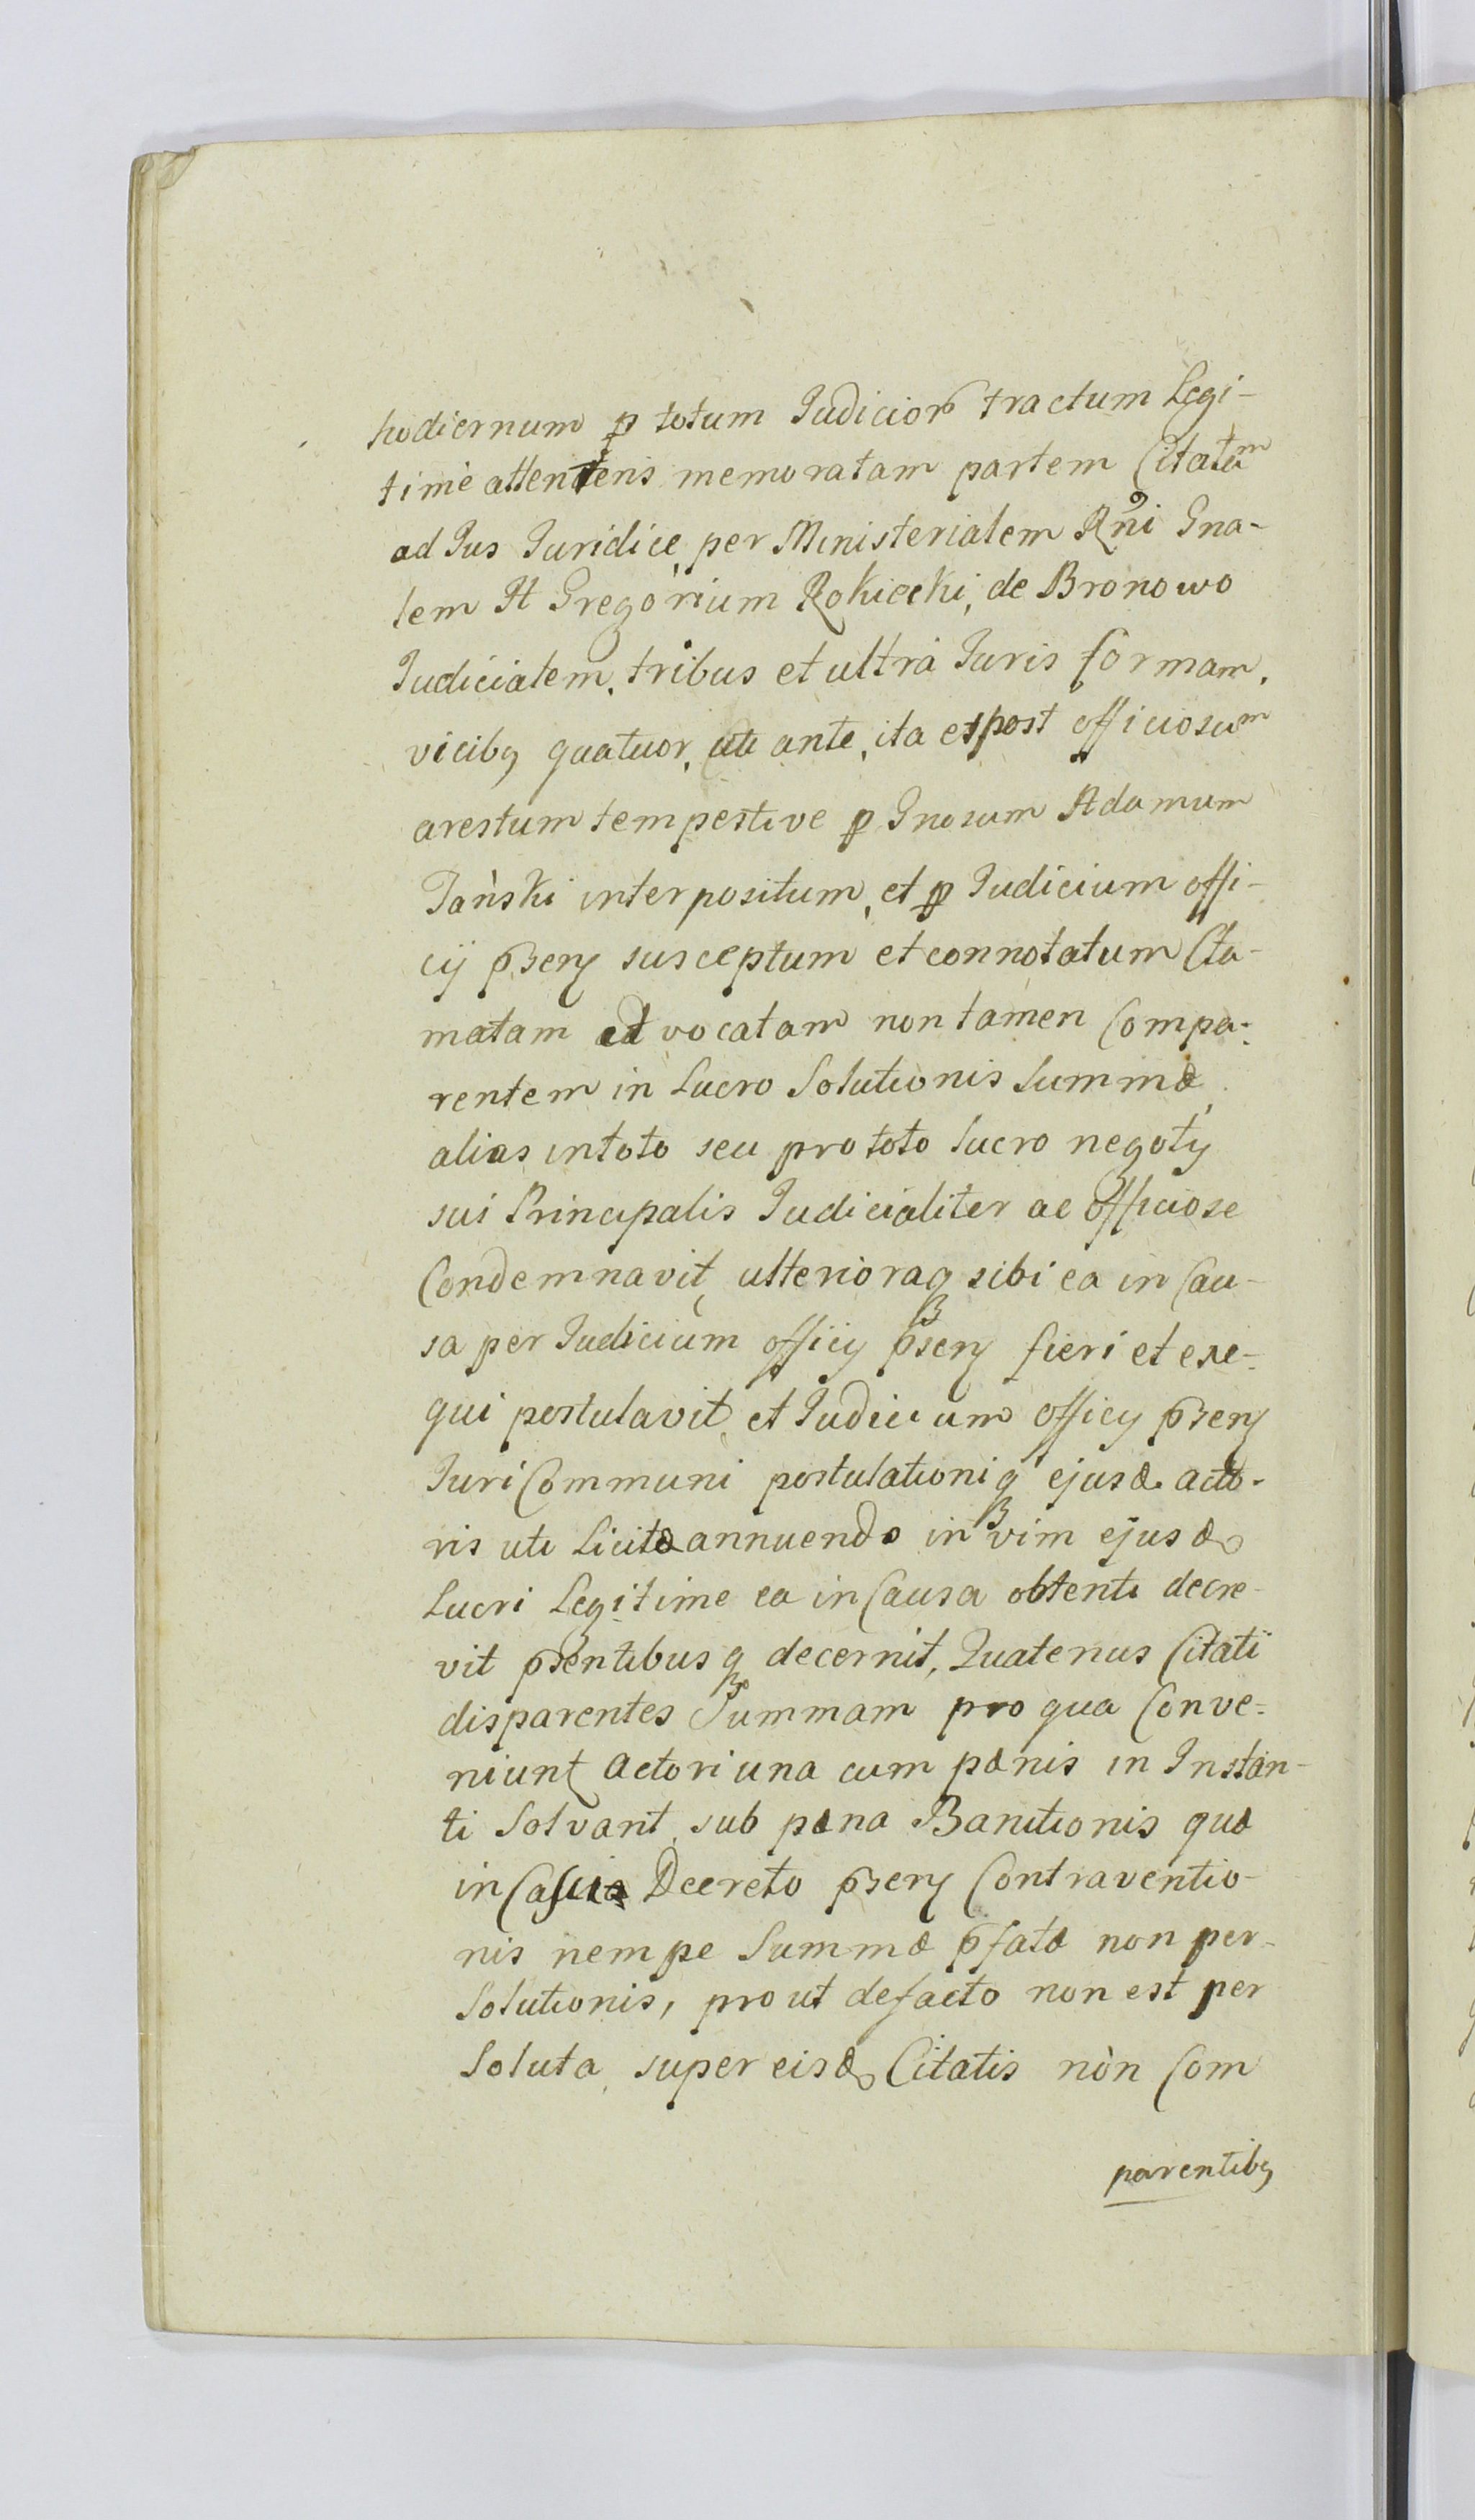 hodiernum ꝑ totum Judicior̃ tractum Legi-
time attentens memoratam partem Citatam
ad Jus Juridice per Ministerialem Rñi Gna-
lem A Gregorium Rokicki, de Bronowo
Judicialem, tribus et ultra Juris formam,
vicibꝫ quatuor, uti ante, ita et post officiosum
arestum tempestive ꝑ Gnosum Adamum
Tański interpositum, et ꝑ Judicium offi-
cij p̃seny susceptum et connotatum Cla-
matam advocatam non tamen Compa-
rentem in Lucro Solutionis Summæ
alias in toto seu pro toto Lucro negoty
sui Principalis Judicialiter ac officiose
Condemnavit, ulterioraqꝫ sibi ea in Cau-
sa per Judicium officy p̃seny fieri et exe-
qui postulavit, et Judicium officy p̃seny
Juri Communi postulationiqꝫ ejusd. acto-
ris uti Licitæ annuendo in vim ejusd
Lucri Legitime ea in Causa obtenti decre-
vit p̃sentibusqꝫ decernit, Quatenus Citati
disparentes Summam pro qua Conve-
niunt Actori una cum pænis in Instan-
ti Solvant, sub pæna Banitionis quæ
in Decreto p̃seny Contraventio-
nis nempe Summæ p̃fatæ non per-
Solutionis, prout defacto non est per
Soluta, super eisd Citatis non Com
parentibꝫ